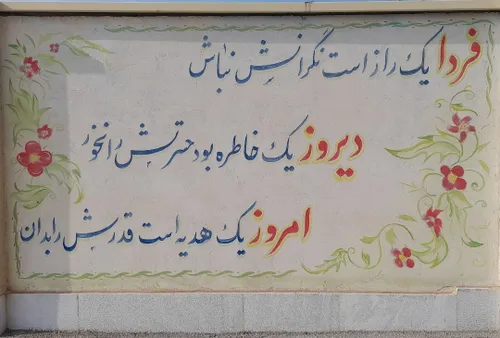 فردا یک راز است نگرانش نباش
دیروز یک خاطره بود حسرتش را نخور
امروز یک هدیه است قدرش را بدان